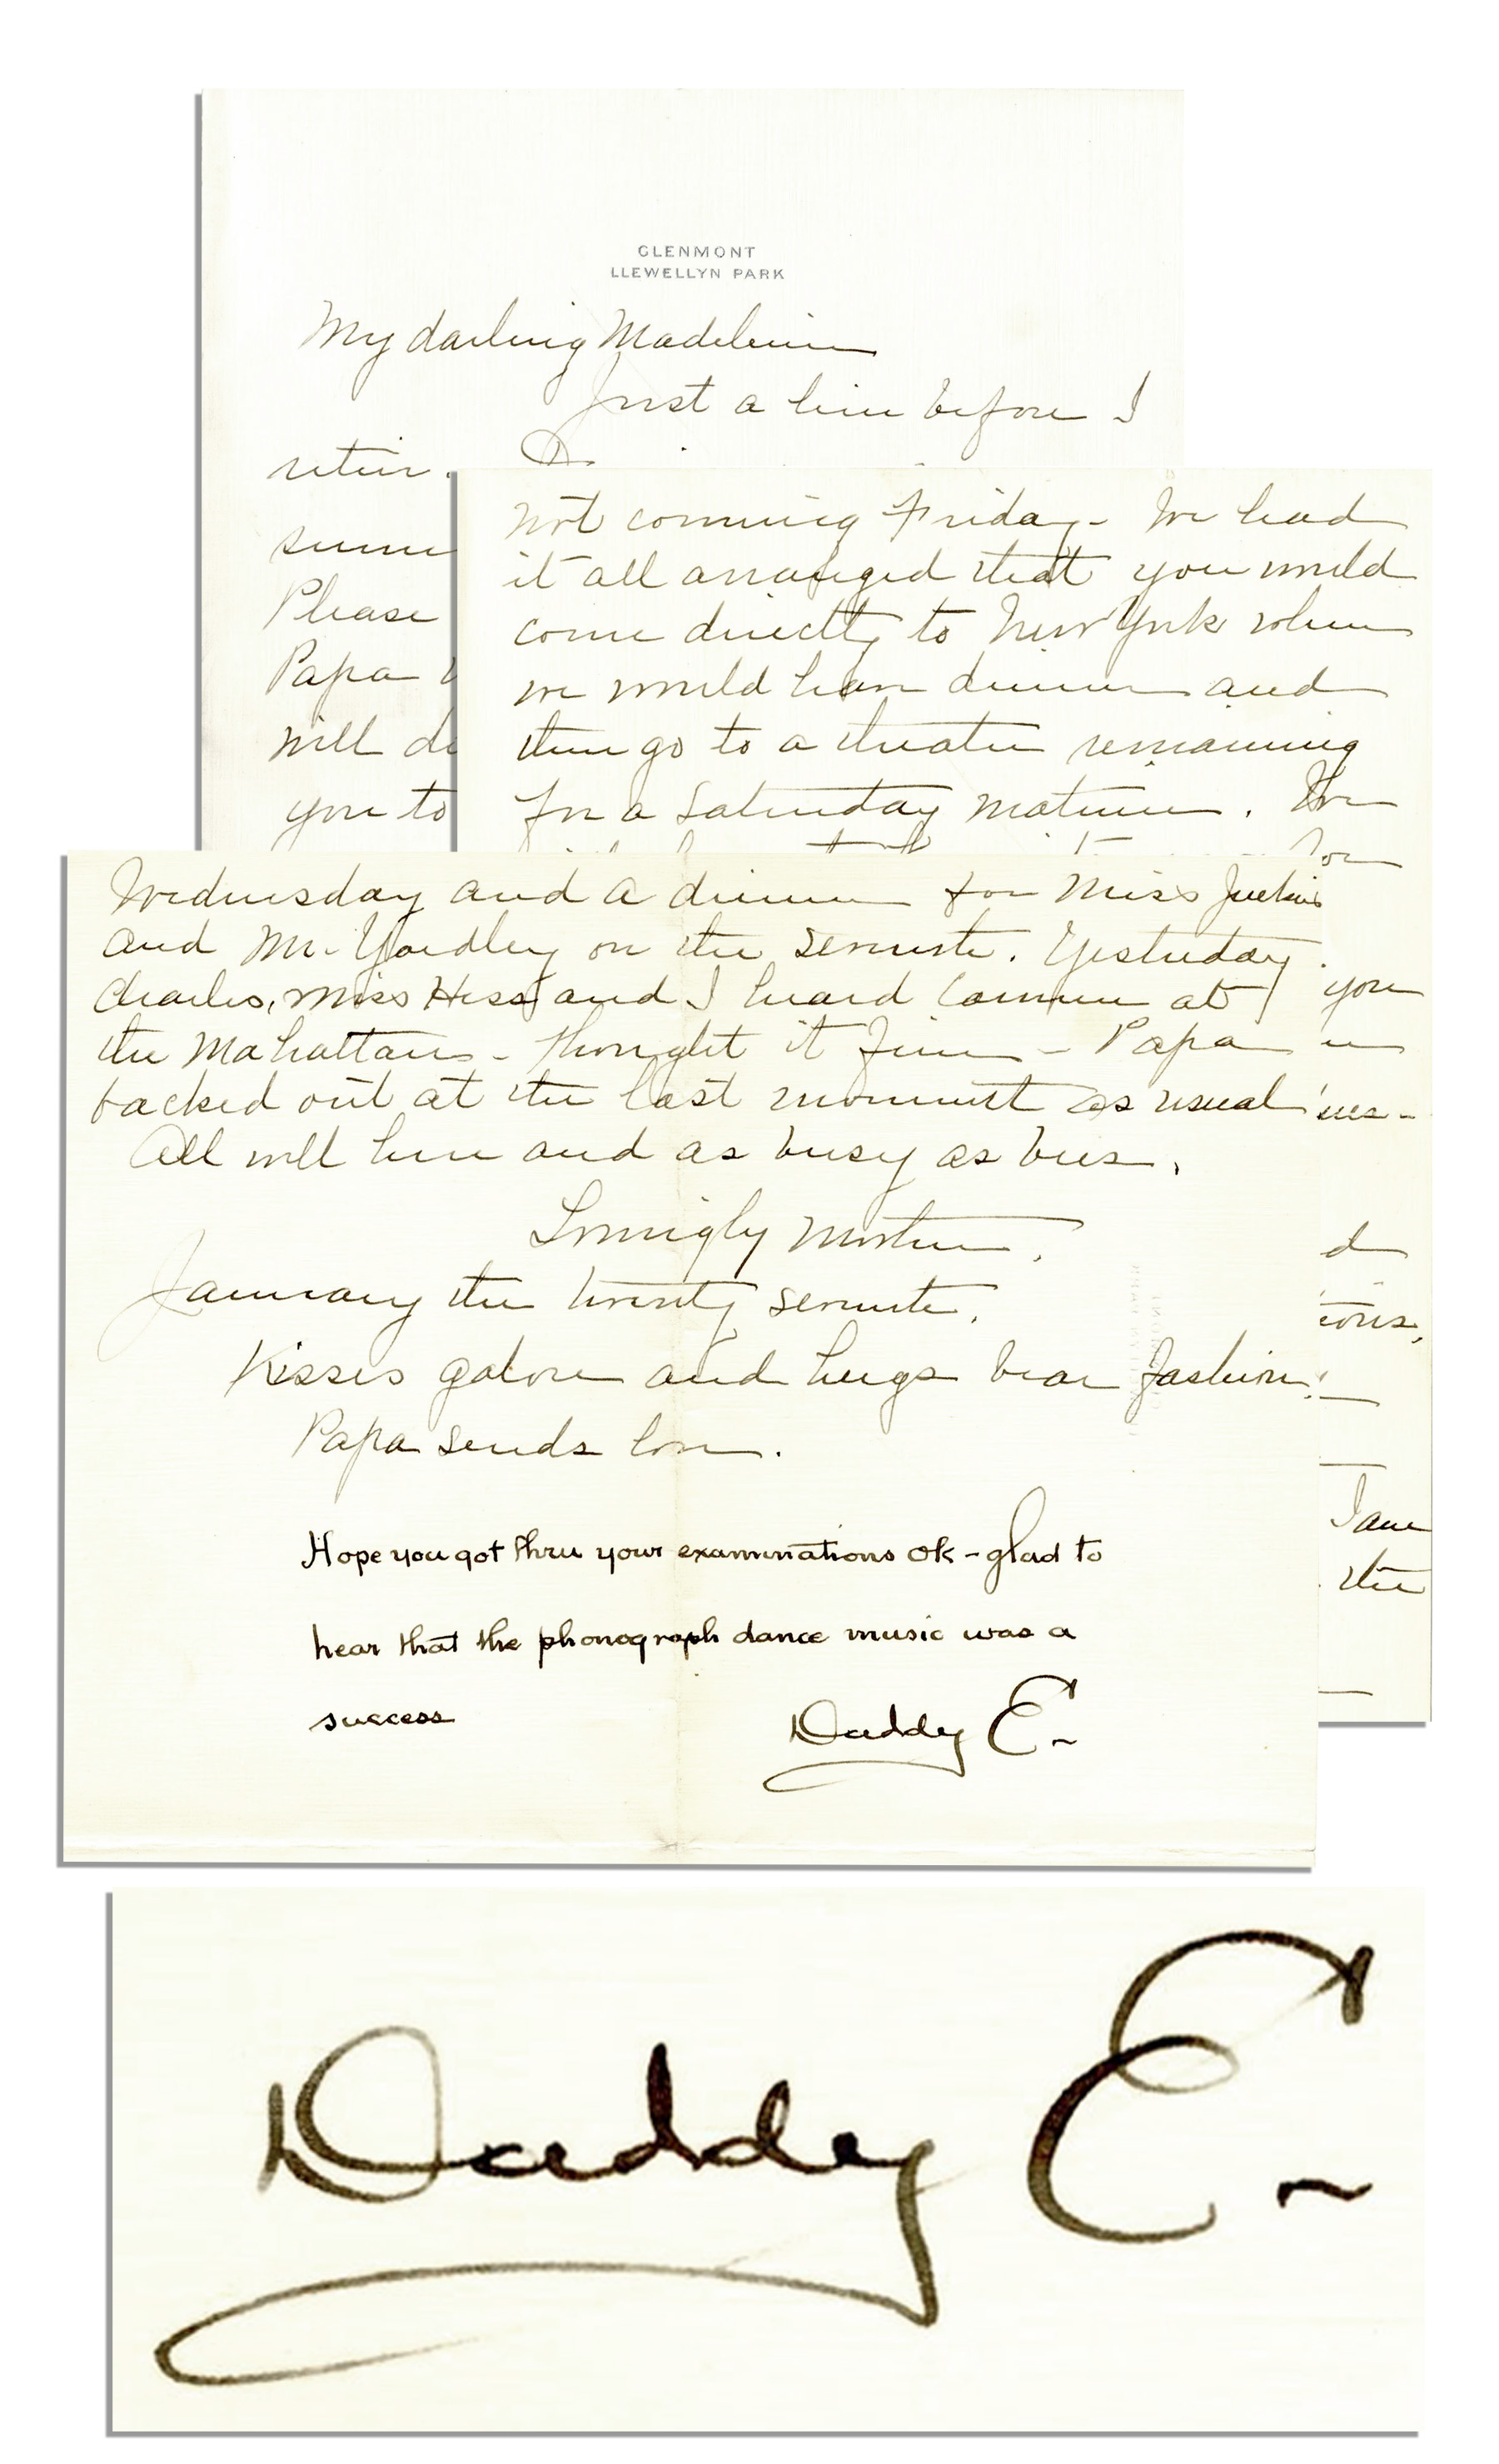 GLENMONT
LLEWELLYN PARK
My darling Madeleine
Just a line before I
retire.
Please
Papa
will de
you to
not comming Friday - We had
it all arranged that you would
come directly to New York when
we would have dinner and
then go to a theatre remaining
for a Saturday matinee. We
Wednesday and a dinner for Miss Jenkins
and Mr. Yardley on the seventh. Yesterday
Charles, Miss Hess and I heard Carmen at
the Mahattan - thought it fine - Papa
backed out at the last moment as usual
All well here and as busy as bees.
Lovingly Mother.
January the twenty seventh.
Kisses galore and hugs bear fashion.
Papa sends love.
Hope you got thru your examinations OK - glad to
hear that the phonograph dance music was a
success
Daddy E -
you
d
ions,
Jane
the
Daddy E -